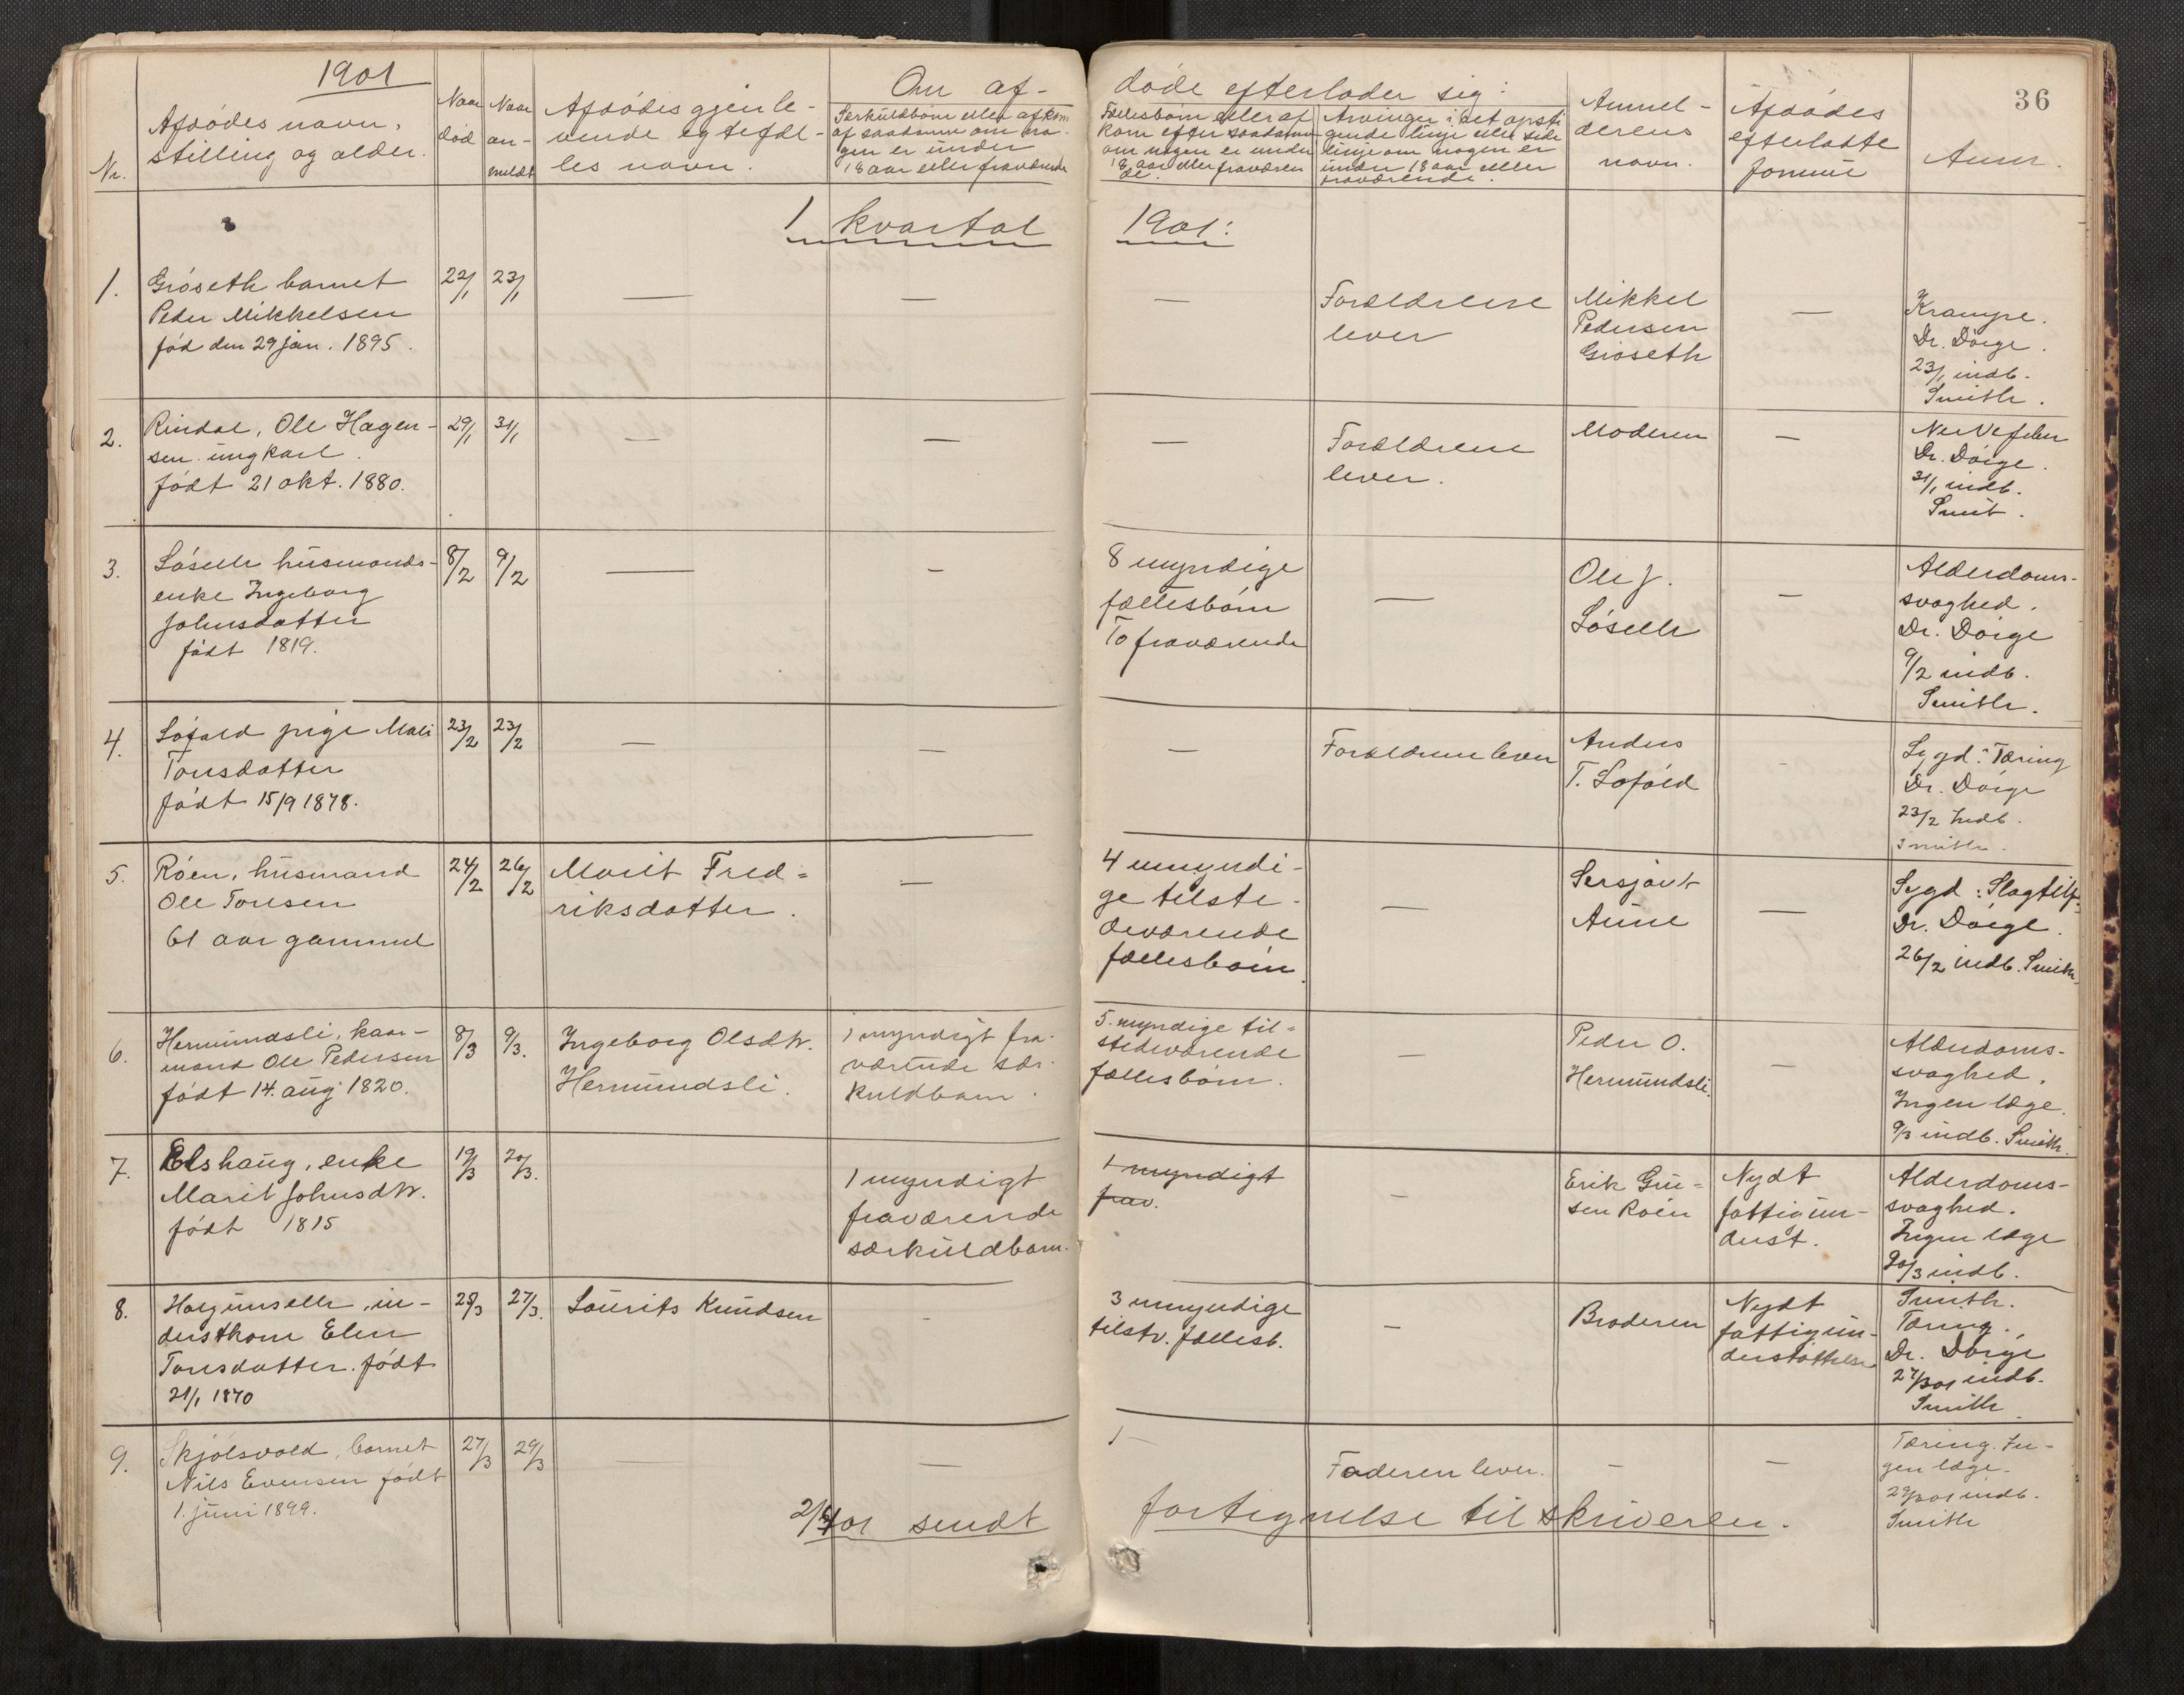 1901
36
Nr.
Afdødes navn,
stilling og alder.
Naar
død
Naar
an-
meldt
Afdødes gjenle-
vende egtefæl-
les navn.
Om af-
døde efterlader sig:
Særkuldbørn eller afkom
af saadanne om no-
gen er under
18 aar eller fraværende
Fællesbørn eller af
kom efter saadanne
om nogen er under
18 aar eller fraværen
de.
Arvinger i det opsti
gende linje eller side
linje om nogen er
under 18 aar eller
fraværende.
Anmel-
derens
navn.
Afdødes
efterladte
formue
Anm.
1 kvartal 1901:
1.
Grøseth barnet
Peder Mikkelsen
fød den 29 jan. 1895.
22/1
23/1
—
—
—
Forældrene
lever
Mikkel
Pedersen
Grøseth
—
Krampe.
Dr. Döige.
23/1 indb.
Smith.
2.
Rindal, Ole Hagen-
sen ungkarl.
født 21 okt. 1880.
29/1
31/1
—
—
—
Forældrene
lever.
Moderen
—
Dr. Döige.
31/1 indb.
Smit.
3.
Løseth husmands-
enke Ingeborg
Johnsdatter
født 1819.
8/2
9/2
—
—
8 myndige
fællesbørn
To fraværende
—
Ole J.
Løseth
—
Alderdoms-
svaghed.
Dr. Döige
9/2 indb.
Smith.
4.
Løfald pige Mali
Tonsdatter
født 15/9 1878.
23/2
23/2
—
—
—
Forældrene lever
Anders
T. Løfald
-
Sygd: Tæring
Dr. Döige
23/2 Indb.
Smith.
5.
Röen, husmand
Ole Tonsen
61 aar gammel
24/2
26/2
Marit Fred=
riksdatter.
—
4 umyndi-
ge tilste-
deværende
fællesbörn.
—
Anne
—
Sygd: Slagtilf.
Dr. Döige.
26/2 indb. Smith
6.
Hermundsli, kaar-
mand Ole Pedersen
født 14. aug 1820.
8/3
9/3.
Ingeborg Olsdtr.
Hermundsli.
1 myndigt fra-
værende sær-
kuldbarn.
5 myndige til=
stedeværende
fællesbørn.
—
Peder O.
Hermundsli.
—
Alderdoms-
svaghed.
Ingen læge.
9/3 indb. Smith.
7.
Elshaug, enke
Marit Johnsdtr.
født 1815
19/3
20/3.
1 myndigt
fraværende
særkuldbarn.
1 myndigt
frav.
-
Erik Gun=
sen Röen
Nydt
fattigun-
derst.
Alderdoms-
svaghed.
Ingen læge
20/3 indb.
Smith.
8.
derstkone Elen
Tonsdatter. født
21/1 1870
25/3
27/3.
Laurits Knudsen
-
3 umyndige
tilstv. fællesb.
—
Broderen
Nydt
fattigun-
derstøttelse
Tæring.
Dr. Döige
27/3 01 indb.
Smith
9.
Skjølsvold, barnet
Nils Evensen født
1. juni 1899.
27/3
29/3
—
—
—
Faderen lever.
—
—
Tæring. In-
gen læge.
29/3 01 indb.
Smith
2/4 01 sendt fortegnelse til skriveren.